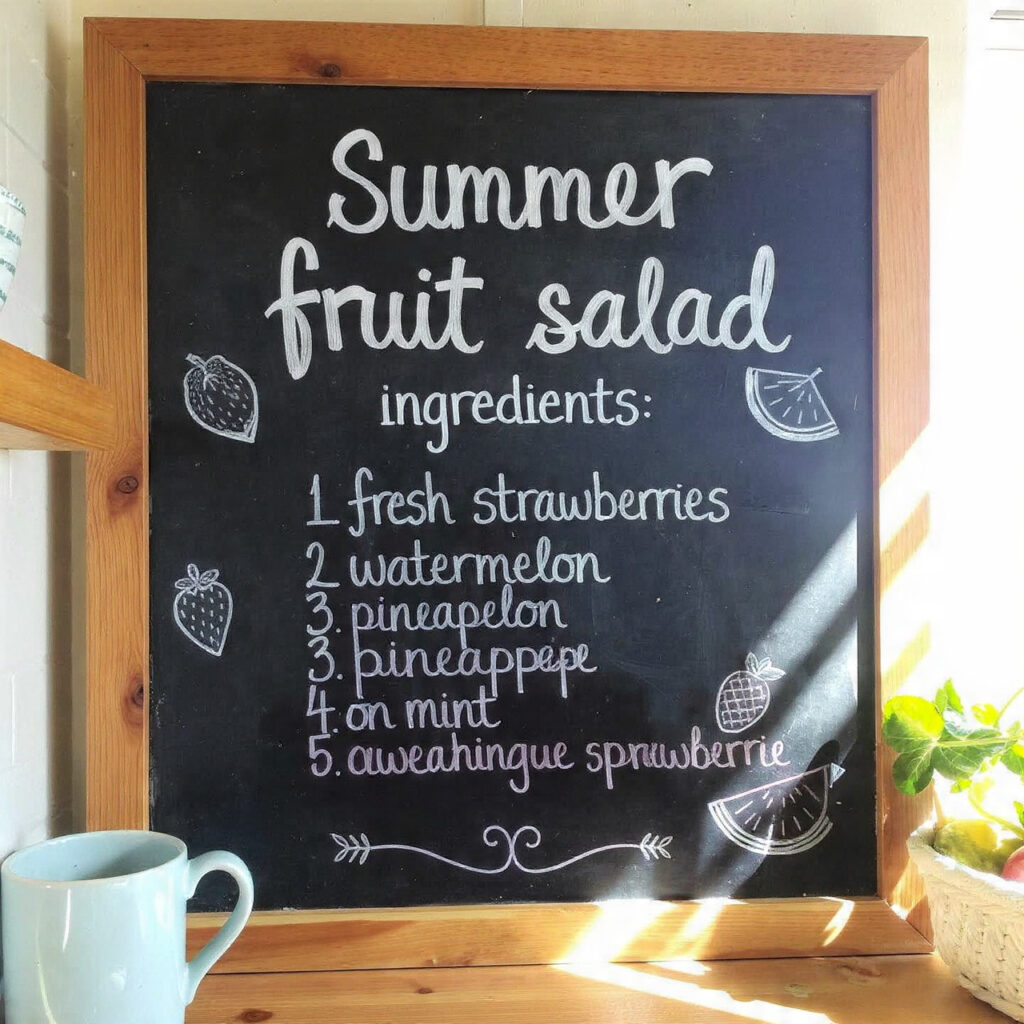 Summer
fruit salad
ingredients:
1 fresh strawberries
2 watermelon
3. pineapelon
3. pineappepe
4. on mint
5. aweahingue sprawberrie